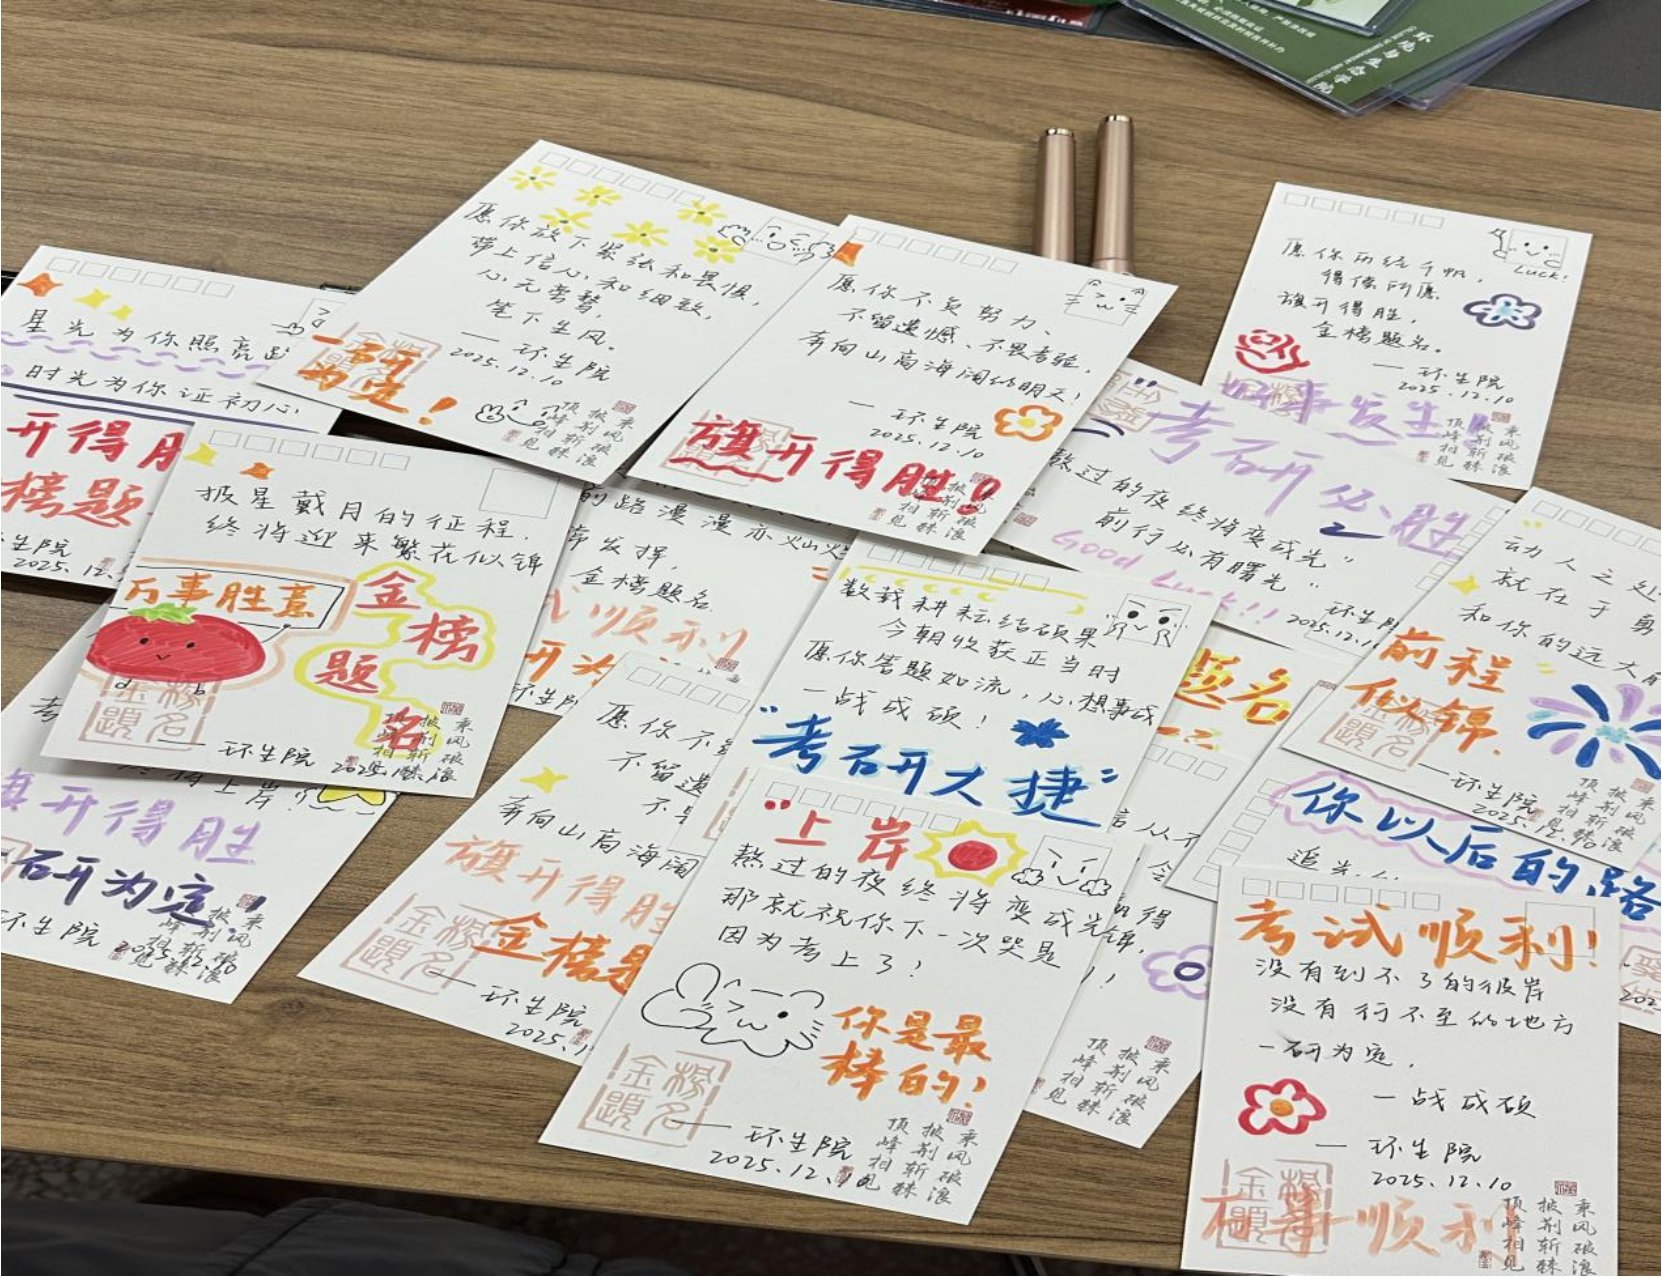 环境与生态学院
愿你放下紧张和畏惧，
带上信心和细致，
心无旁骛，
笔下生风。
——环生院
2025.12.10
一研为定！
顶峰相见
披荆斩棘
乘风破浪
愿你不负努力、
不留遗憾、不畏考验，
奔向山高海阔的明天！
——环生院
2025.12.10
旗开得胜！
披荆斩棘
乘风破浪
Luck!
愿你历经千帆，
得偿所愿
旗开得胜，
金榜题名。
——环生院
2025.12.10
好事发生
顶峰相见
披荆斩棘
乘风破浪
星光为你照亮
时光为你证初心
开得胜
榜题
生院
2025.12.
考研必胜
熬过的夜终将变成光"
前行必有曙光"
Good Luck!!
环生
2025.12.1
披星戴月的征程，
终将迎来繁花似锦
万事胜意
金榜题名
金榜題名
——环生院
2025.
顶峰相见
披荆斩棘
乘风破浪
前路漫漫亦
常发挥，
金榜题名
顺利
研为
环生院
数载耕耘结硕果
今朝收获正当时
愿你答题如流，心想事成
一战成硕！
"考研大捷"
题名
动人之处
就在于勇
和你的远大
前程似锦.
金榜題名
——环生院
2025.12.
顶峰相见
披荆斩棘
乘风破浪
上岸
旗开得胜
研为定！
环生院
顶峰相见
披荆斩棘
乘风破浪
愿你不
不留遗
不
奔向山高海阔
旗开得胜
金榜题
金榜題名
——环生院
2025.1
你以后的路
追光
"上岸
熬过的夜终将变成光
那就祝你下一次哭是
因为考上了！
你是最棒的！
金榜題名
——环生院
2025.12.
顶峰相见
披荆斩棘
乘风破浪
顶峰相见
披荆斩棘
乘风破浪
考试顺利！
没有到不了的彼岸
没有行不至的地方
一研为定，
一战成硕
——环生院
2025.12.10
金榜題名
顺利
顶峰相见
披荆斩棘
乘风破浪